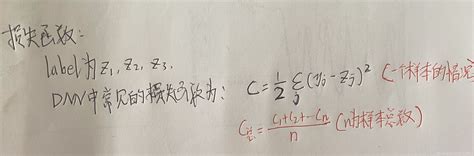 损失函数:
label为 z₁, z₂, z₃.
DNN中常见的损失函数为: C = 1/2 ∑j (yj - zj)² (一个样本的情况)
C总 = (C₁+C₂+…Cn)/n (n为样本总数)